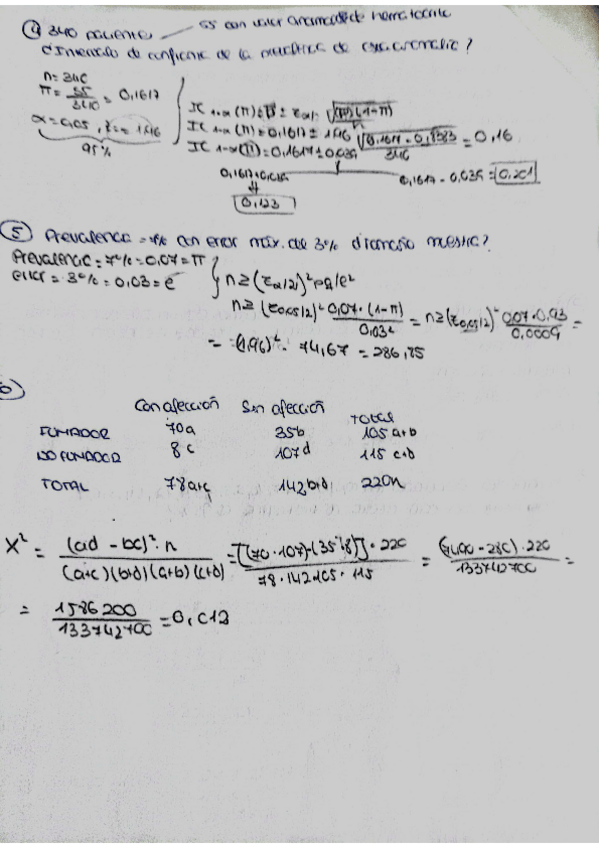 ④ 340 paciente — 55 con valor anómalo de hematocrito
¿Intervalo de confianza de la muestra de esa anomalía?
n = 340
π = 55/340 = 0,1617
α = 0,05, z = 1,96
95%
IC 1-α (π) = π ± z α/2 · √(π)(1-π)/n
IC 1-α (π) = 0,1617 ± 1,96 √0,1617 · 0,8383/340 = 0,16
IC 1-α (π) = 0,1617 ± 0,039
0,1617+0,039
0,123
0,1617 - 0,039 = 0,201
⑤ Prevalencia = 7% con error máx. de 3% ¿tamaño muestra?
Prevalencia = 7% = 0,07 = π
error = 3% = 0,03 = e
n ≥ (z α/2)² pq/e²
n ≥ (z 0,05/2)² 0,07 · (1-π)/0,03² = n ≥ (z 0,05/2)² 0,07 · 0,93/0,0009 =
= (1,96)² · 74,67 = 286,85
6)
Con afección Sin afección TOTAL
FUMADOR 70a 35b 105 a+b
NO FUMADOR 8c 107d 115 c+d
TOTAL 78a+c 142b+d 220n
X² = (ad - bc)² · n/(a+c)(b+d)(a+b)(c+d) = [(70 · 107)-(35 · 8)] · 220/78 · 142 · 105 · 115 = (7490 - 280) · 220/133742700 =
= 1586200/133742700 = 0,012